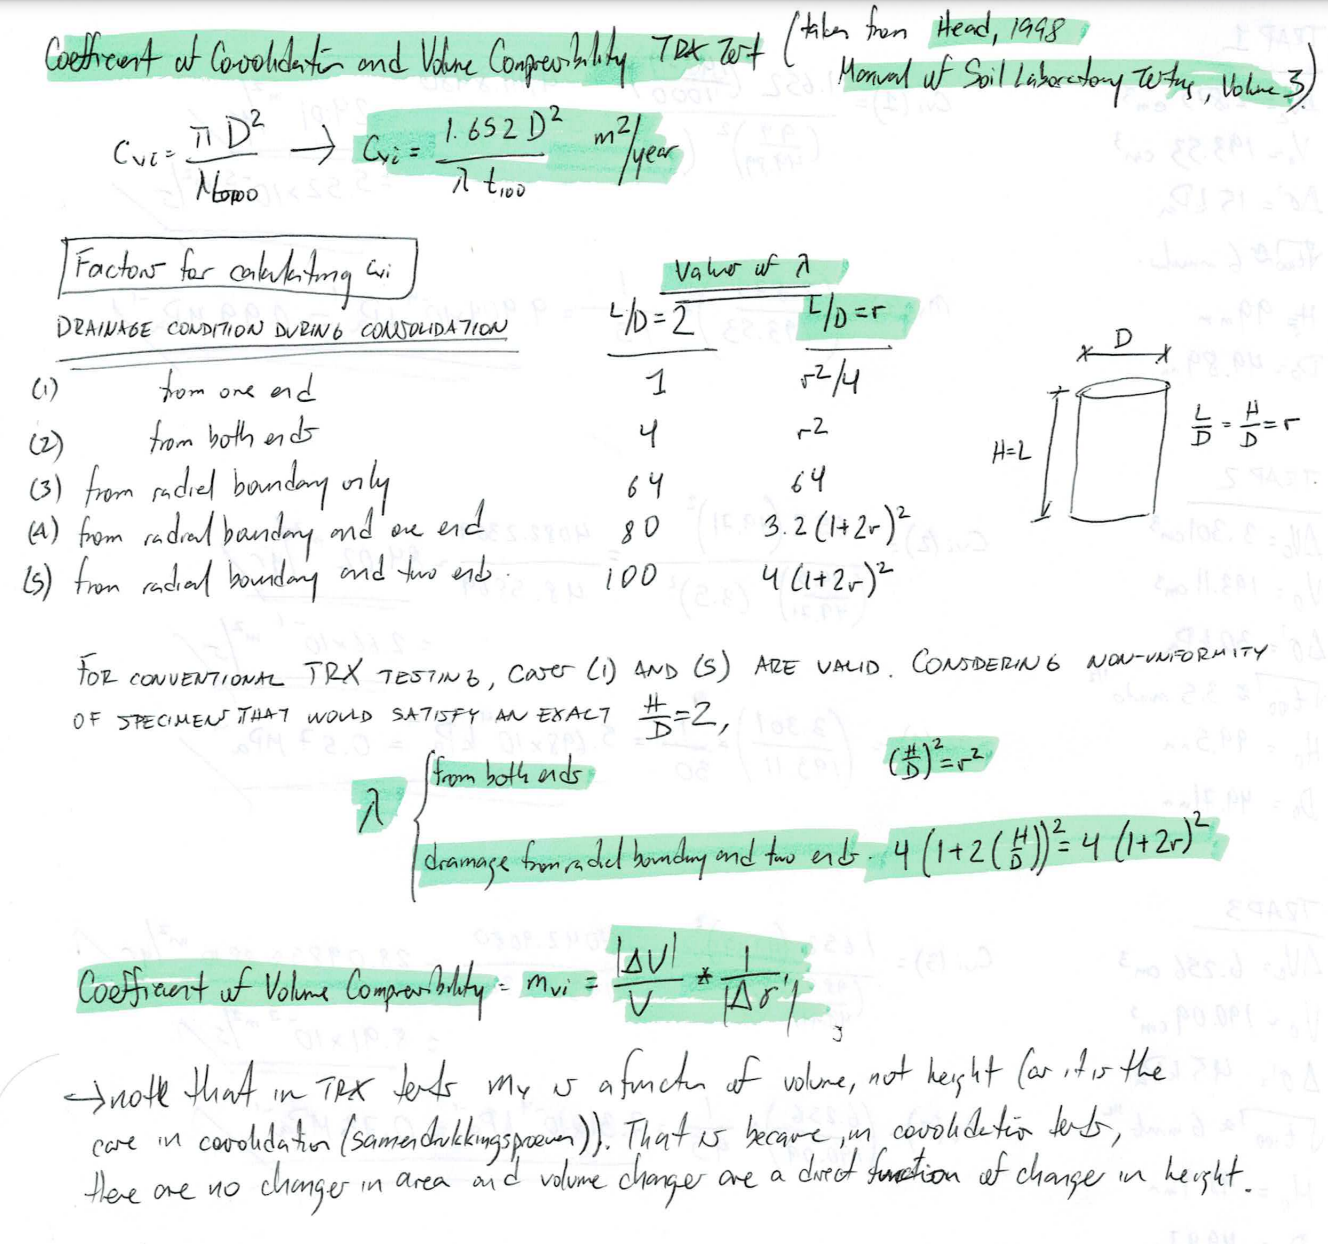 Coefficient of Consolidation and Volume Compressibility TRX Test (taken from Head, 1998
Manual of Soil Laboratory Testing, Volume 3)
Cvi = π D² / λ t100 → Cvi = 1.652 D² / λ t100 m²/year
Factors for calculating Cvi
Value of λ
DRAINAGE CONDITION DURING CONSOLIDATION L/D = 2 L/D = r
(1) from one end 1 r²/4
(2) from both ends 4 r²
(3) from radial boundary only 64 64
(4) from radial boundary and one end 80 3.2 (1+2r)²
(5) from radial boundary and two ends. 100 4 (1+2r)²
D
H=L
L/D = H/D = r
FOR CONVENTIONAL TRX TESTING, cases (1) AND (5) ARE VALID. CONSDERING NON-UNIFORMITY
OF SPECIMEN THAT WOULD SATISFY AN EXACT H/D = 2,
λ { from both ends (H/D)² = r²
drainage from radial boundary and two ends. 4 (1+2(H/D))² = 4 (1+2r)²
Coefficient of Volume Compressibility = mvi = |ΔV| / V * 1 / |Δσ'| ;
→ note that in TRX tests mv is a function of volume, not height (as it is the
case in consolidation (samendrukkingsproeven)). That is because, in consolidation tests,
there are no changes in area and volume changes are a direct function of changes in height.